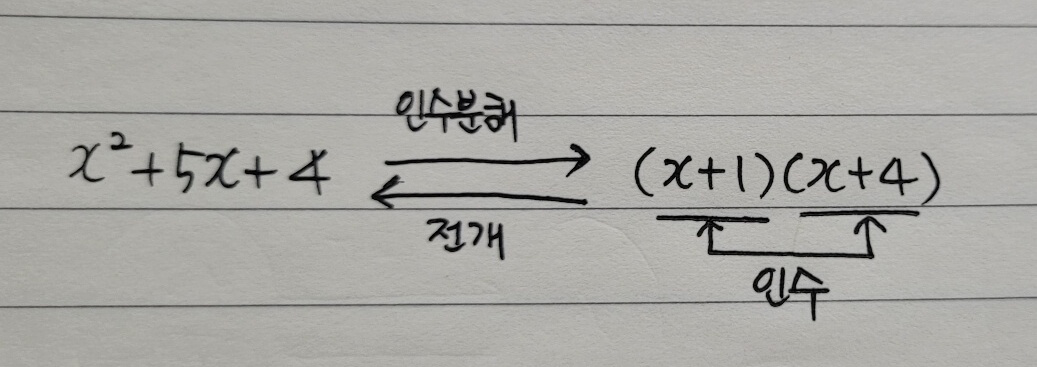 인수분해
x²+5x+4 ⇄ (x+1)(x+4)
전개
인수